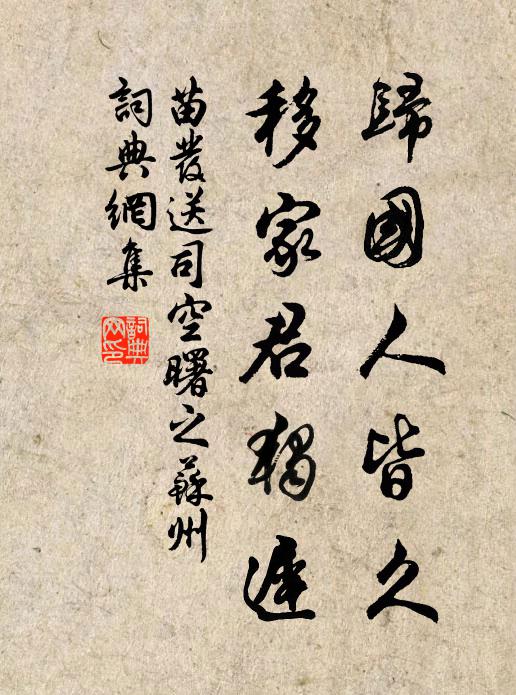 歸國人皆久
移家君獨遲
苗發送司空曙之蘇州
詞典網集
詞典
網印